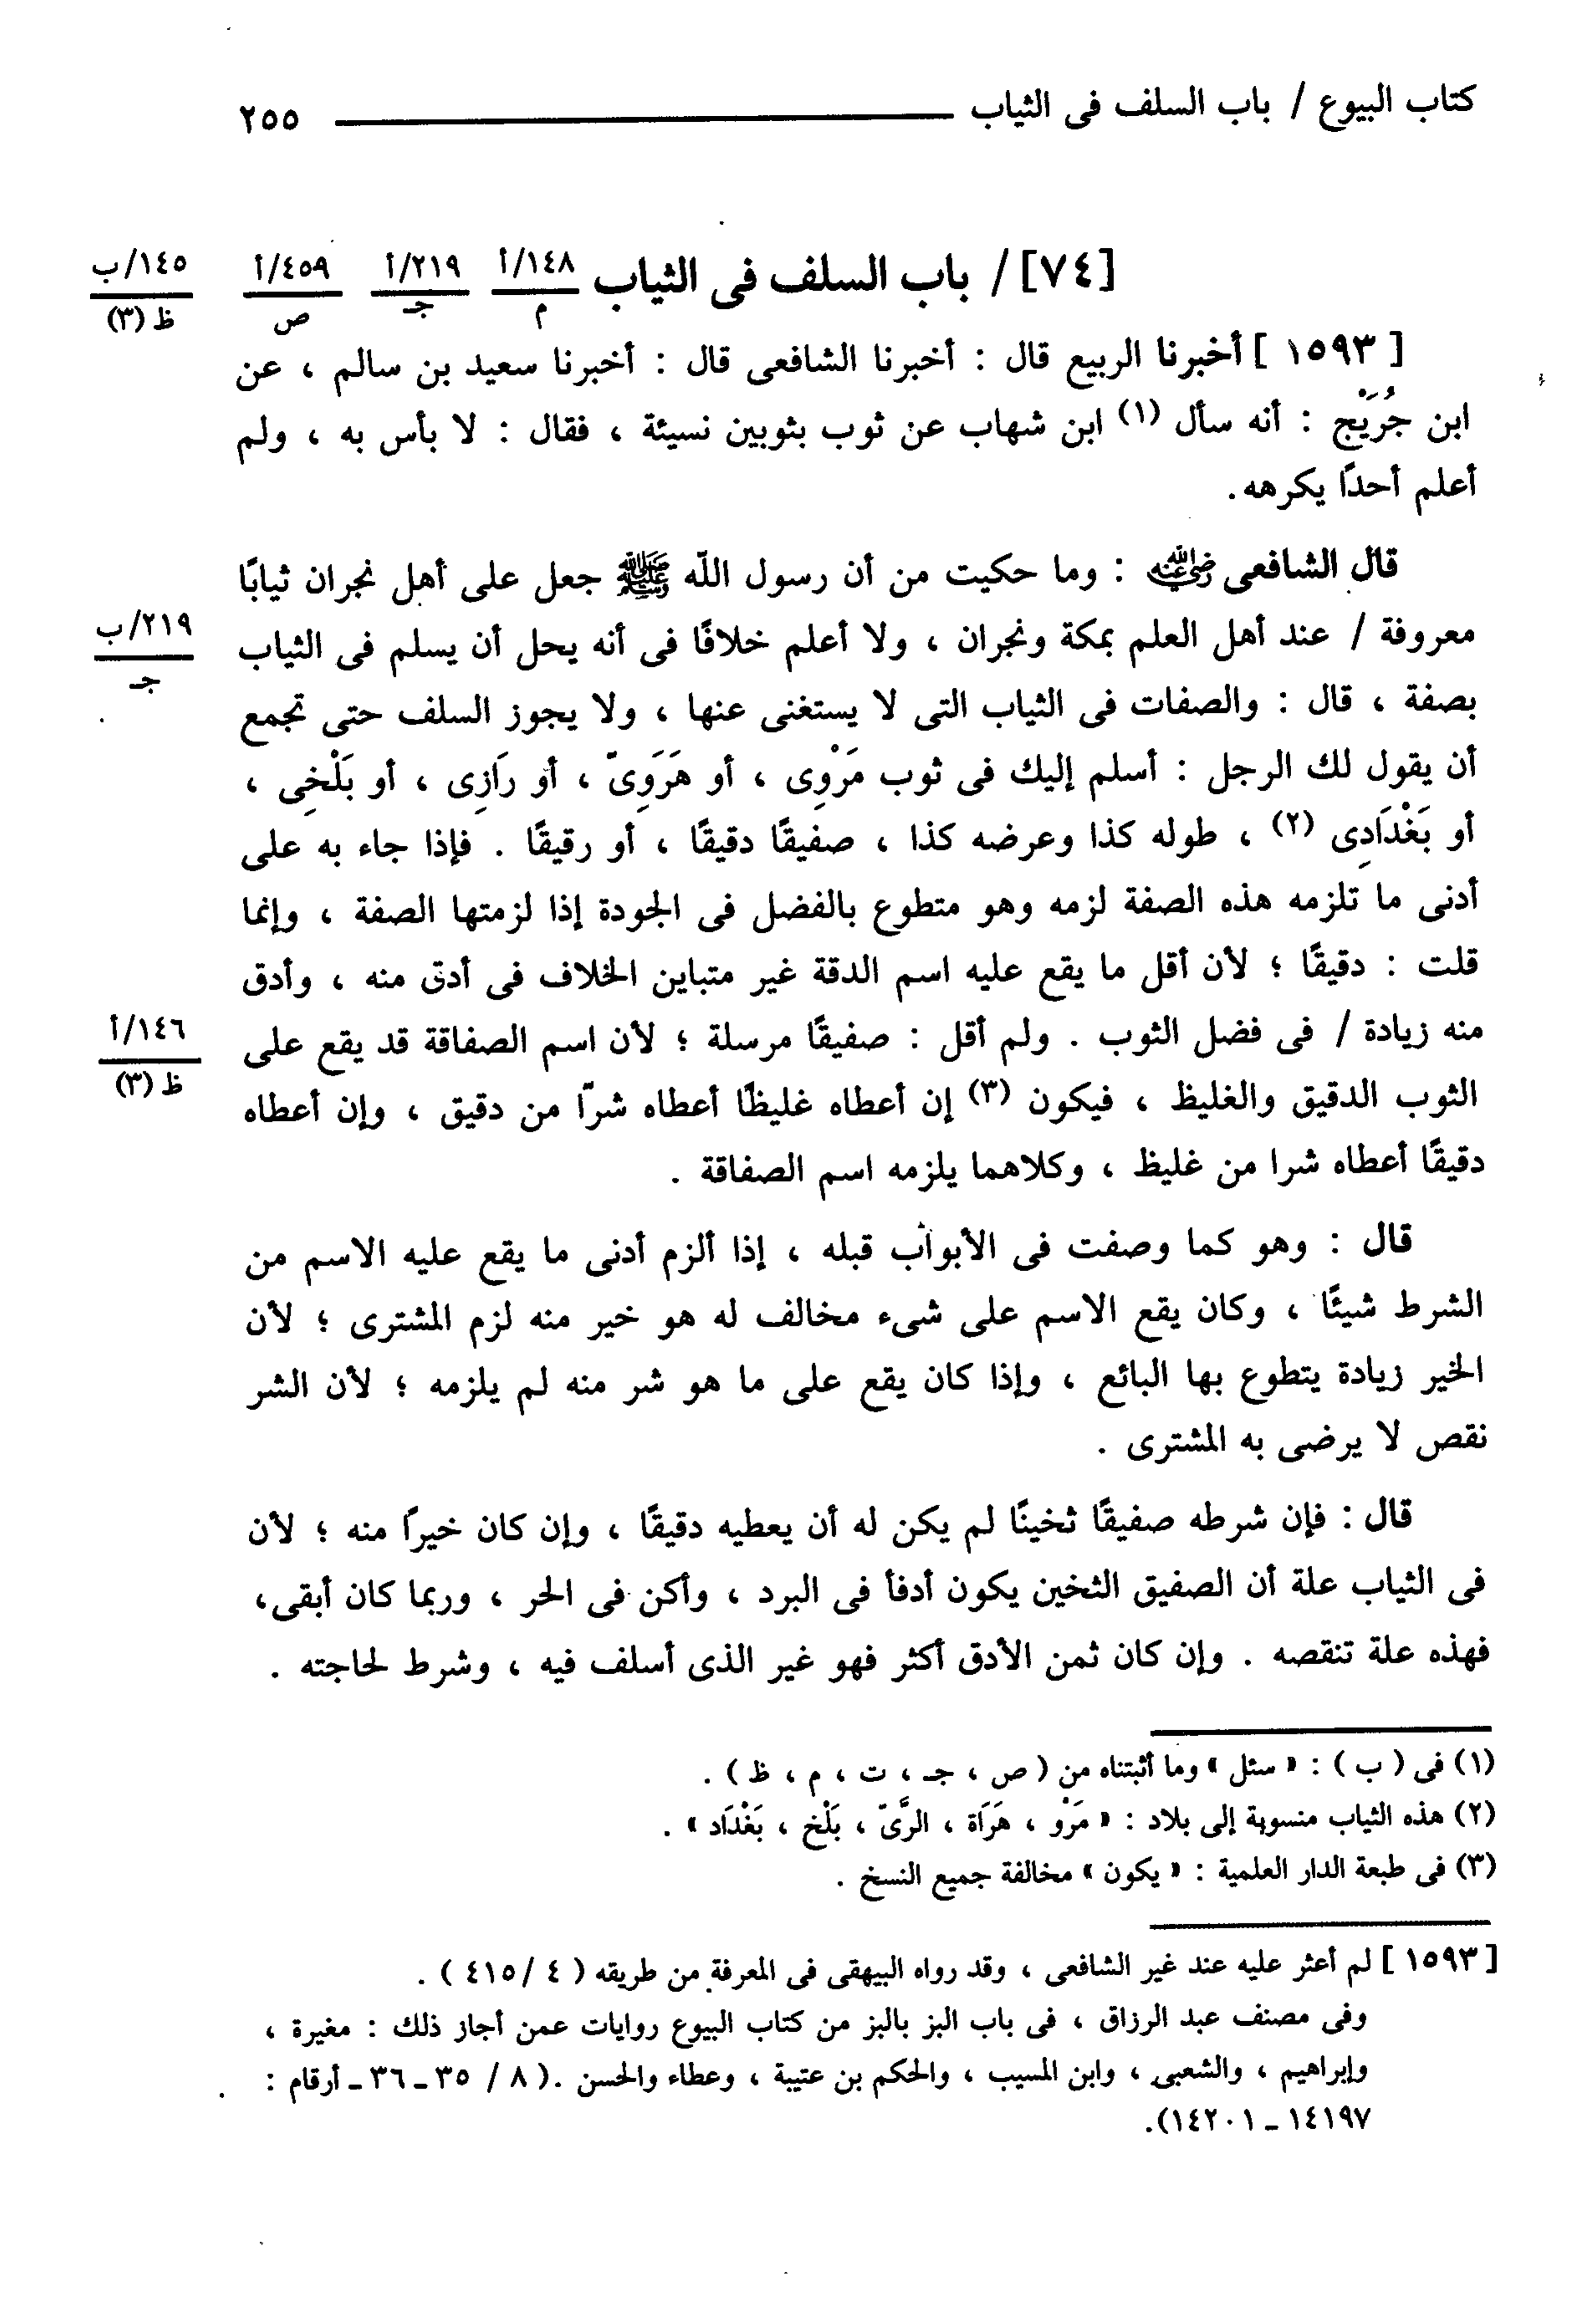 كتاب البيوع / باب السلف فى الثياب ٢٥٥
[٧٤] / باب السلف فى الثياب ١٤٨/أ م ٢١٩/أ جـ ٤٥٩/أ ص ١٤٥/ب ظ (٣)
[ ١٥٩٣ ] أخبرنا الربيع قال : أخبرنا الشافعى قال : أخبرنا سعيد بن سالم ، عن
ابن جُرَيْج : أنه سأل (١) ابن شهاب عن ثوب بثوبين نسيئة ، فقال : لا بأس به ، ولم
أعلم أحدًا يكرهه .
قال الشافعى رضي الله عنه : وما حكيت من أن رسول اللّه ﷺ جعل على أهل نجران ثيابًا
معروفة / عند أهل العلم بمكة ونجران ، ولا أعلم خلافًا فى أنه يحل أن يسلم فى الثياب ٢١٩/ب جـ
بصفة ، قال : والصفات فى الثياب التى لا يستغنى عنها ، ولا يجوز السلف حتى تجمع
أن يقول لك الرجل : أسلم إليك فى ثوب مَرْوِى ، أو هَرَوِىّ ، أو رَازِى ، أو بَلْخِى ،
أو بَغْدَادِى (٢) ، طوله كذا وعرضه كذا ، صفيقًا دقيقًا ، أو رقيقًا . فإذا جاء به على
أدنى ما تلزمه هذه الصفة لزمه وهو متطوع بالفضل فى الجودة إذا لزمتها الصفة ، وإنما
قلت : دقيقًا ؛ لأن أقل ما يقع عليه اسم الدقة غير متباين الخلاف فى أدق منه ، وأدق
منه زيادة / فى فضل الثوب . ولم أقل : صفيقًا مرسلة ؛ لأن اسم الصفاقة قد يقع على ١٤٦/أ ظ (٣)
الثوب الدقيق والغليظ ، فيكون (٣) إن أعطاه غليظًا أعطاه شرًّا من دقيق ، وإن أعطاه
دقيقًا أعطاه شرا من غليظ ، وكلاهما يلزمه اسم الصفاقة .
قال : وهو كما وصفت فى الأبواب قبله ، إذا ألزم أدنى ما يقع عليه الاسم من
الشرط شيئًا ، وكان يقع الاسم على شىء مخالف له هو خير منه لزم المشترى ؛ لأن
الخير زيادة يتطوع بها البائع ، وإذا كان يقع على ما هو شر منه لم يلزمه ؛ لأن الشر
نقص لا يرضى به المشترى .
قال : فإن شرطه صفيقًا ثخينًا لم يكن له أن يعطيه دقيقًا ، وإن كان خيرًا منه ؛ لأن
فى الثياب علة أن الصفيق الثخين يكون أدفأ فى البرد ، وأكن فى الحر ، وربما كان أبقى،
فهذه علة تنقصه . وإن كان ثمن الأدق أكثر فهو غير الذى أسلف فيه ، وشرط لحاجته .
(١) فى ( ب ) : « سئل » وما أثبتناه من ( ص ، جـ ، ت ، م ، ظ ) .
(٢) هذه الثياب منسوبة إلى بلاد : « مَرْو ، هَرَاة ، الرَّىّ ، بَلْخ ، بَغْدَاد » .
(٣) فى طبعة الدار العلمية : « يكون » مخالفة جميع النسخ .
[ ١٥٩٣ ] لم أعثر عليه عند غير الشافعى ، وقد رواه البيهقى فى المعرفة من طريقه ( ٤ / ٤١٥ ) .
وفى مصنف عبد الرزاق ، فى باب البز بالبز من كتاب البيوع روايات عمن أجاز ذلك : مغيرة ،
وإبراهيم ، والشعبى ، وابن المسيب ، والحكم بن عتيبة ، وعطاء والحسن .( ٨ / ٣٥ ـ ٣٦ ـ أرقام :
١٤١٩٧ ـ ١٤٢٠١).